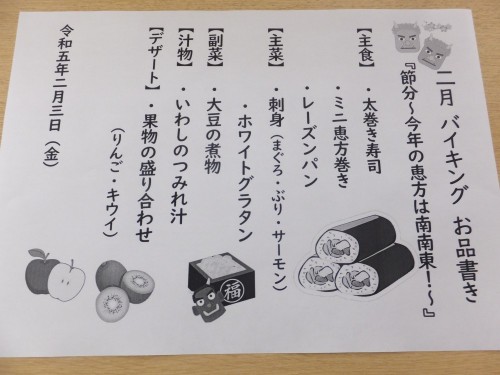 二月 バイキング お品書き
『節分～今年の恵方は南南東！～』
【主食】・太巻き寿司
・ミニ恵方巻き
・レーズンパン
【主菜】・刺身（まぐろ・ぶり・サーモン）
・ホワイトグラタン
【副菜】・大豆の煮物
【汁物】・いわしのつみれ汁
【デザート】・果物の盛り合わせ
（りんご・キウイ）
令和五年二月三日（金）
福